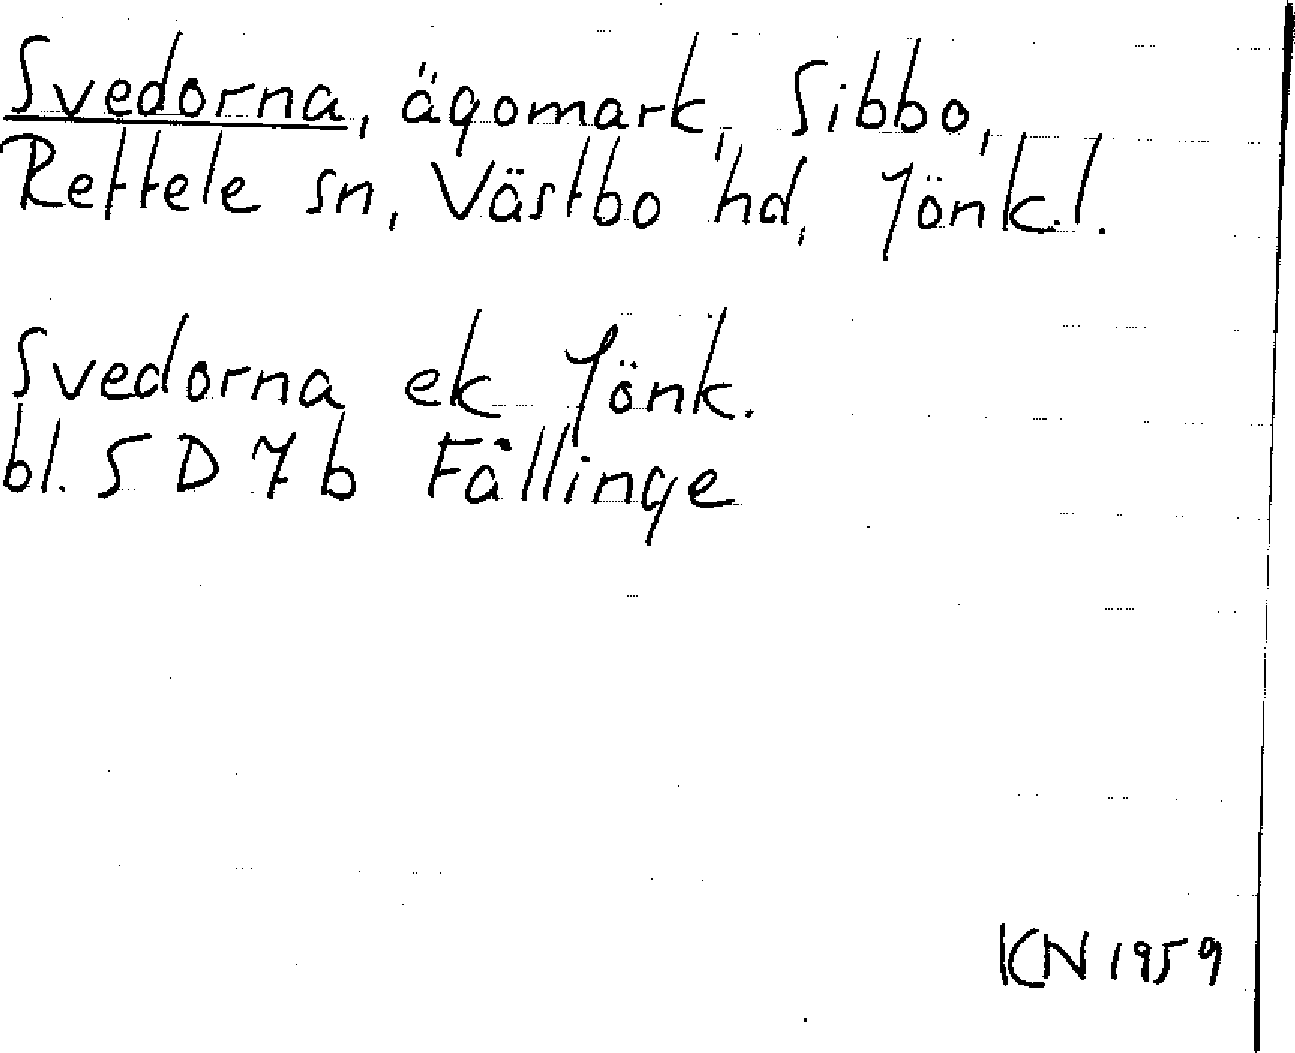 Svedorna, ägomark, Sibbo,
Reftele sn, Västbo hd, Jönk.l.
Svedorna ek Jönk.
bl. 5 D 7 b Fållinge
KN 1959